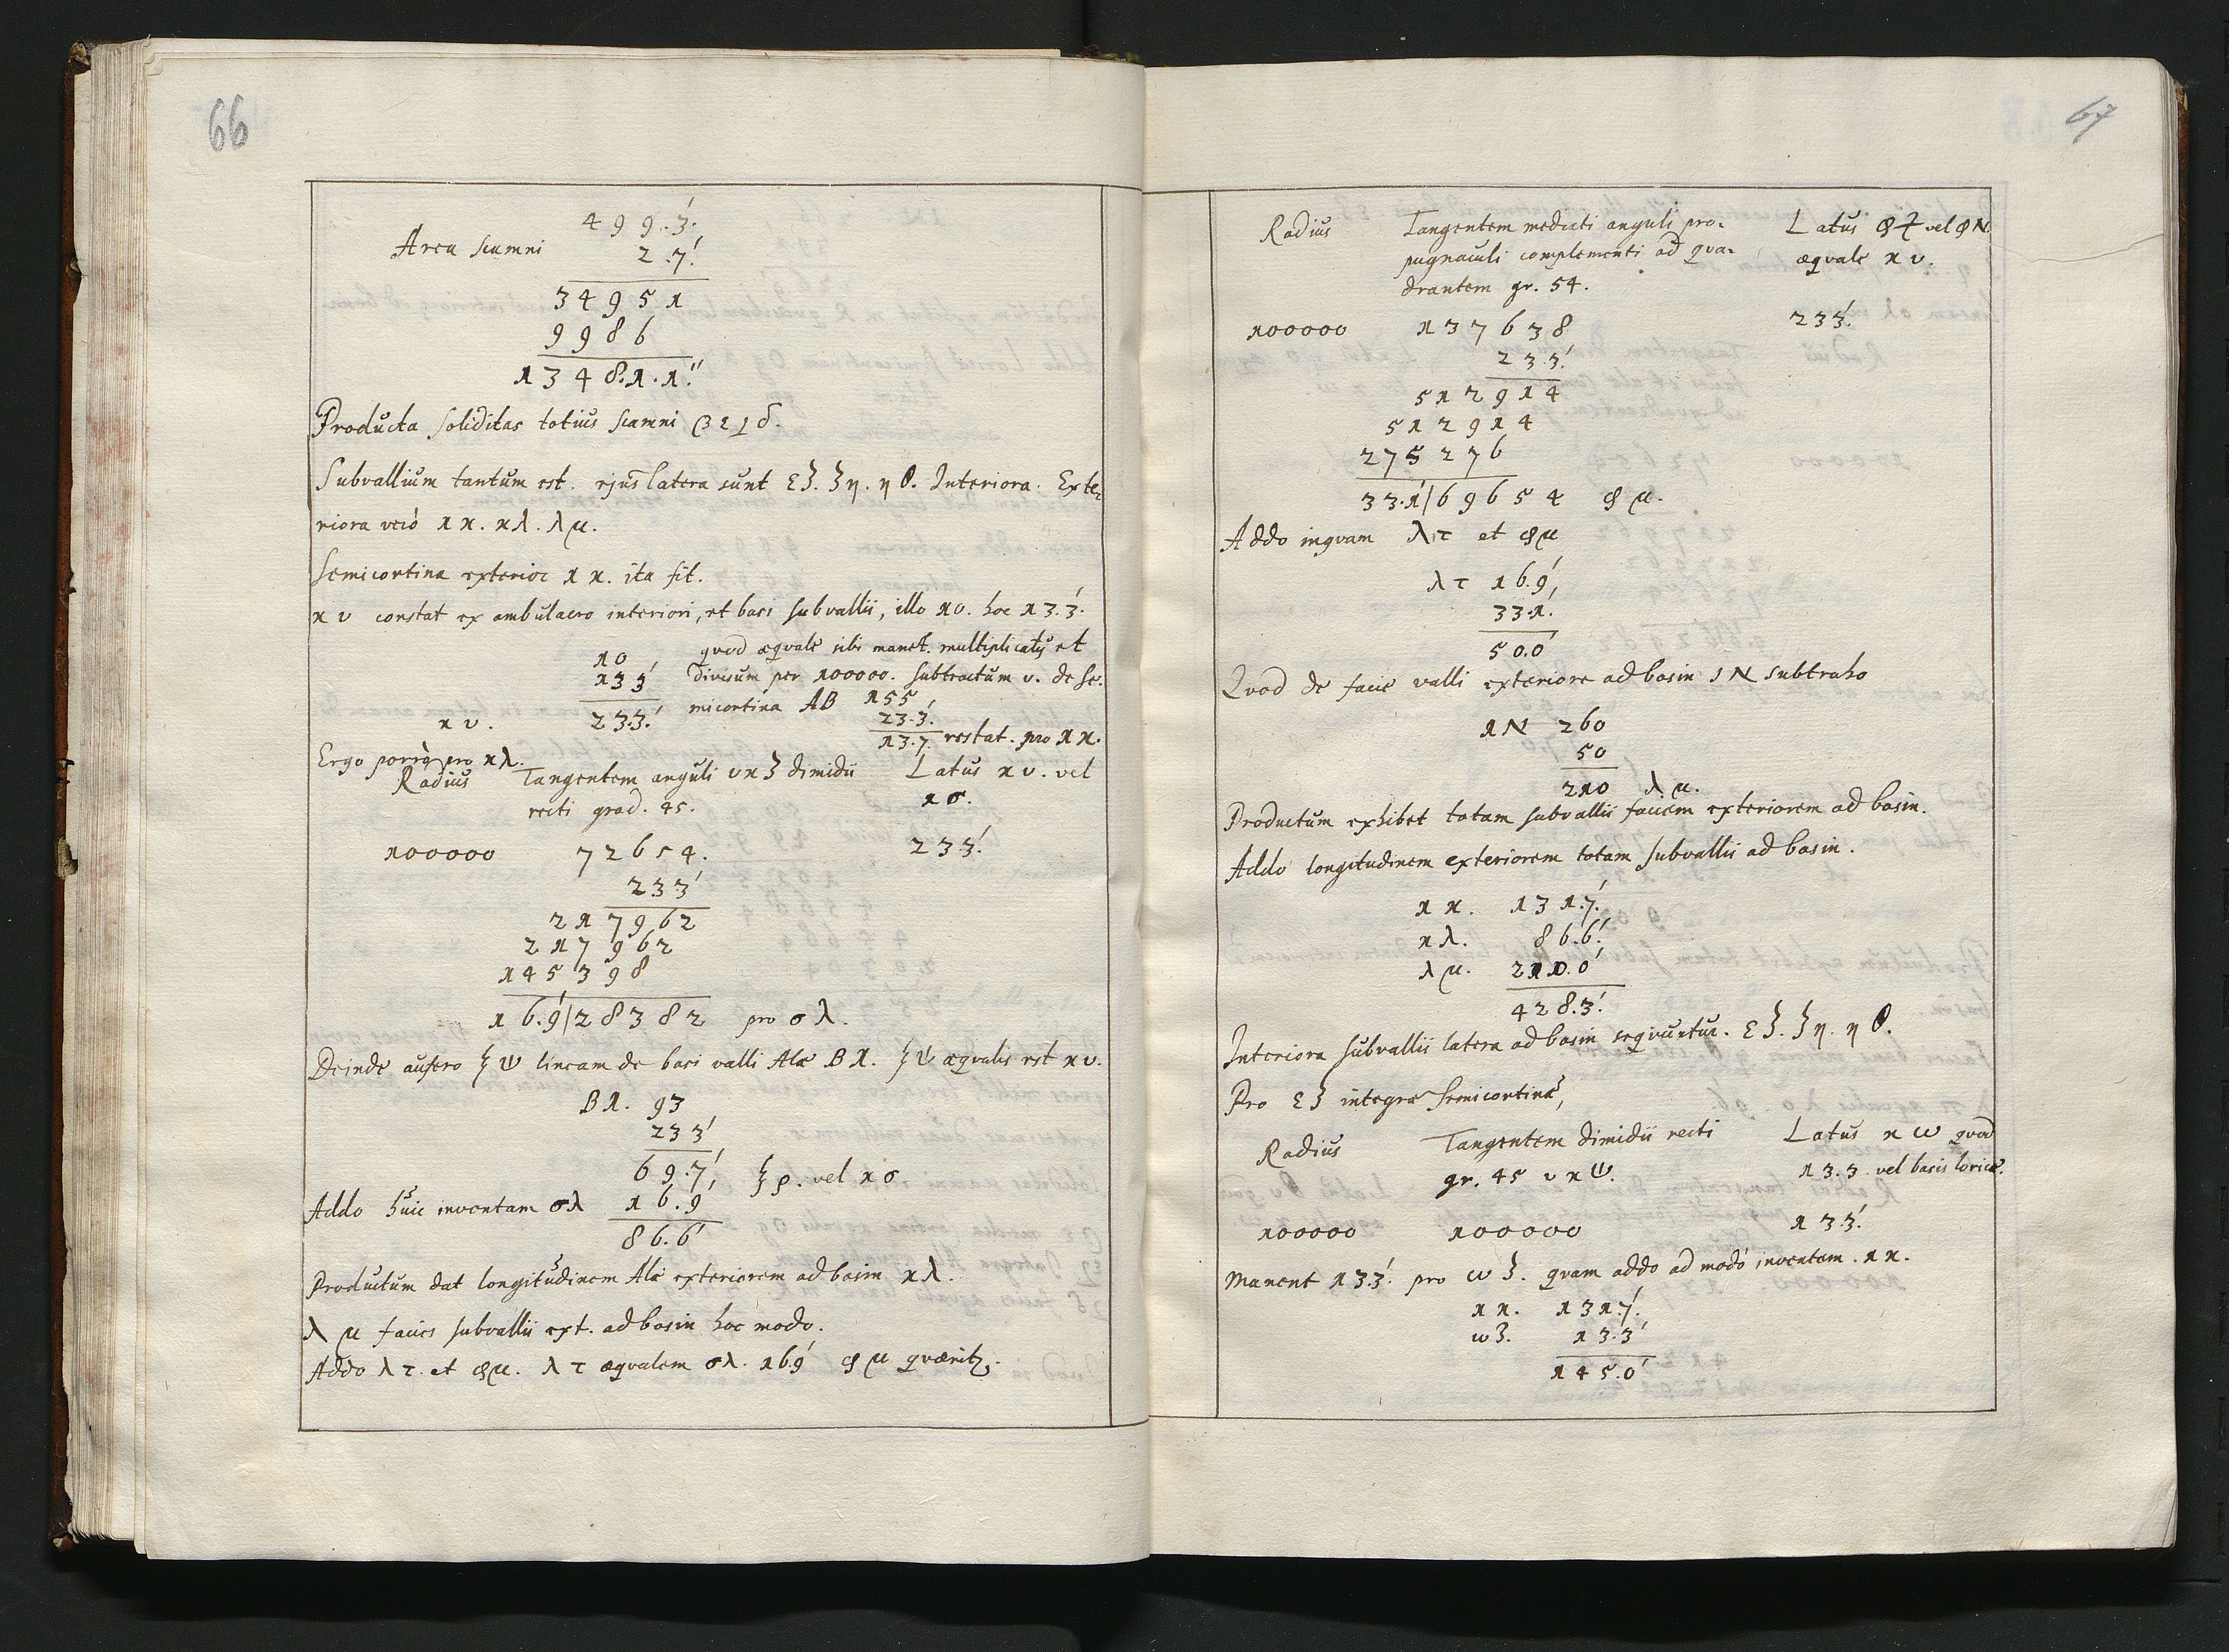 66
4 9 9. 3.'
Area scamni 2. 7.'
3 4 9 5 1
9 9 8 6
1 3 4 8. 1. 1.''
Producta soliditas totius scamni
Subvallium tantum est. ejus latera sunt εζ. ζη. ηθ. Interiora. Exte-
riora verò 1 ϰ. ϰλ. λμ.
Semicortina exterior 1 ϰ. ita fit.
ϰ υ constat ex ambulacro interiori, et basi subvallii, illo 10. hoc 13. 3.'
10 quod æquale sibi manet. multiplicatis et
13 3' divisum per 100000. subtractum υ. de se-
micortina AB 155
ϰ υ. 2 3. 3.' 23. 3.'
13. 7. restat. pro 1 ϰ.
Ergo porrò pro ϰλ.
Radius Tangentem anguli υϰζ dimidii Latus ϰυ. vel
recti grad. 45. ϰσ.
100000 7 2 6 5 4. 2 3 3.'
2 3 3'
2 1 7 9 6 2
2 1 7 9 6 2
1 4 5 3 9 8
1 6. 9'|2 8 3 8 2 pro σ λ.
Deinde aufero ξψ lineam de basi valli Alæ B 1. ξψ æqualis est ϰυ.
B 1. 93
2 3 3'
6 9. 7', ξρ. vel ϰσ
Addo huic inventam σλ 1 6. 9
8 6. 6'
Productum dat longitudinem Alæ exteriorem ad basin ϰλ.
λμ facies subvallii ext. ad basin hoc modo.
Addo λτ. et φμ. λτ æqualem σλ. 16 9' φμ quæritq.
67
Radius Tangentem mediati anguli pro- Latus vel φN
pugnaculi complementi ad qua- æquale ϰυ.
drantem gr. 54.
100000 1 3 7 6 3 8 2 3 3.'
2 3. 3.'
5 1 2 9 1 4
5 1 2 9 1 4
2 7 5 2 7 6
3 3. 1'|6 9 6 5 4 φμ.
Addo inquam λτ et φμ
λτ 1 6. 9',
3 3. 1.
5 0. 0'
Quod de facie valli exteriore ad basin 1 N subtraho
1 N 2 6 0
5 0
2 1 0 λμ.
Productum exhibet totam subvallii faciem exteriorem ad basin.
Addo longitudinem exteriorem totam subvallii ad basin.
1 ϰ. 1 3 1. 7.'
ϰλ. 8 6. 6.'
λμ. 2 1 0. 0'
4 2 8. 3.'
Interiora subvallii latera ad basin sequuntur. εζ. ζη. ηθ.
Pro εζ integræ Semicortinæ,
Radius Tangentem dimidii recti Latus ϰω quod
gr. 45 υϰψ. 13. 3. vel basis loricæ.
100000 100000 1 3 3.'
Manent 1 3 3.' pro ωζ. quam addo ad modò inventam. 1 ϰ.
1 ϰ. 1 3 1. 7.'
ωζ. 1 3. 3'
1 4 5. 0'